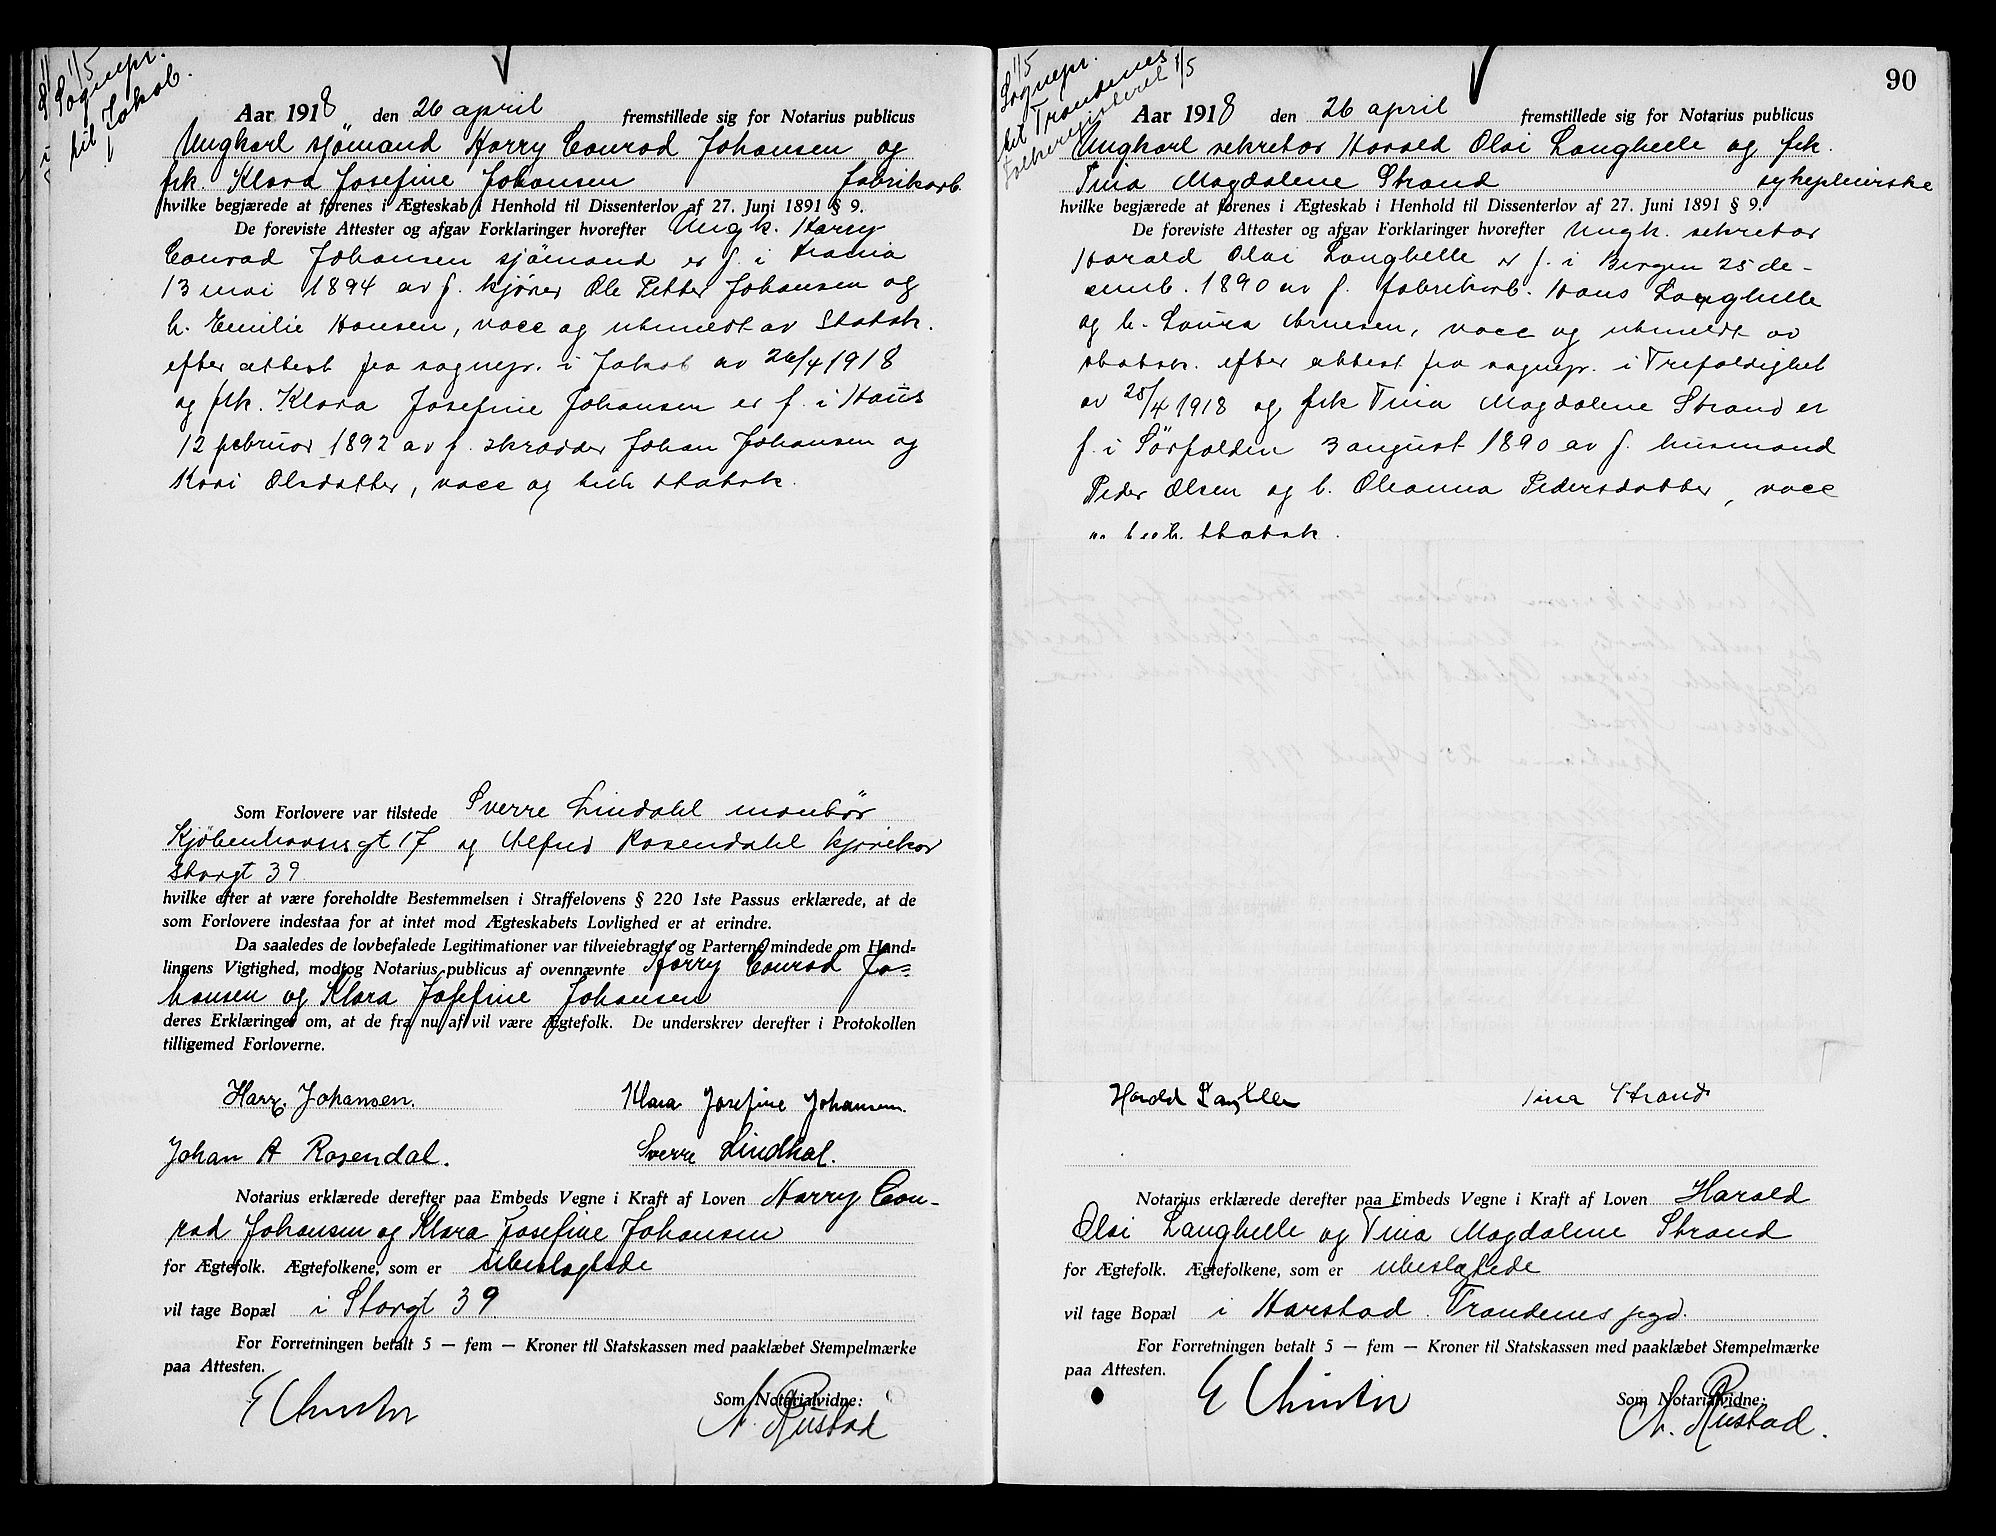 1/5
Sognepr.
til Jakob.
Aar 1918 den 26 april fremstillede sig for Notarius publicus
Ungkarl sjömand Harry Conrad Johansen og
frk. Klara Josefine Johansen fabrikarb.
hvilke begjærede at forenes i Ægteskab i Henhold til Dissenterlov af 27. Juni 1891 § 9.
De foreviste Attester og afgav Forklaringer hvorefter Ungk. Harry
Conrad Johansen sjömand er f. i
13 mai 1894 av f. kjörer Ole Petter Johansen og
h. Emilie Hansen, vacc og utmeldt av Statsk.
efter attest fra sognepr. i Jakob av 26/4 1918
og frk. Klara Josefine Johansen er f. i Haus
12 februar 1892 av f. skrædder Johan Johansen og
Kari Olsdatter, vacc og tilh. statsk.
Som Forlovere var tilstede Sverre Lindahl montör
Kjöbenhavnsgt 17 og Alfred Rosendahl
Storgt 39
hvilke efter at være foreholdte Bestemmelsen i Straffelovens § 220 1ste Passus erklærede, at de
som Forlovere indestaa for at intet mod Ægteskabets Lovlighed er at erindre.
Da saaledes de lovbefalede Legitimationer var tilveiebragte og Parterne mindede om Hand-
lingens Vigtighed, modtog Notarius publicus af ovennævnte Harry Conrad Jo-
hansen og Klara Josefine Johansen
deres Erklæringer om, at de fra nu af vil være Ægtefolk. De underskrev derefter i Protokollen
tilligemed Forloverne.
Harry Johansen. Klara Josefine Johansen.
Johan A Rosendal. Sverre Lindhal.
Notarius erklærede derefter paa Embeds Vegne i Kraft af Loven Harry Con-
rad Johansen og Klara Josefine Johansen
for Ægtefolk. Ægtefolkene, som er ubeslægtede
vil tage Bopæl i Storgt 39
For Forretningen betalt 5 — fem — Kroner til Statskassen med paaklæbet Stempelmærke
paa Attesten.
Som Notarialvidne:
E Christie N. Rustad
90
1/5
Sognepr.
til Trondenes
Folkeregisteret 1/5
Aar 1918 den 26 april fremstillede sig for Notarius publicus
Ungkarl sekretær Harald Olai Langhelle og frk.
Tina Magdalene Strand sykepleierske
hvilke begjærede at forenes i Ægteskab i Henhold til Dissenterlov af 27. Juni 1891 § 9.
De foreviste Attester og afgav Forklaringer hvorefter Ungk. sekretær
Harald Olai Langhelle er f. i Bergen 25 de-
semb. 1890 av f. fabrikarb. Hans Langhelle
og h. Laura Arnesen, vacc og utmeldt av
statsk. efter attest fra sognepr. i Trefoldighet
av 25/4 1918 og frk Tina Magdalene Strand er
f. i Sörfolden 3 august 1890 av f. husmand
Peder Olsen og h. Oleanna Pedersdatter, vacc
og tilh. statsk.
Harald Langhelle Tina Strand
Notarius erklærede derefter paa Embeds Vegne i Kraft af Loven Harald
Olai Langhelle og Tina Magdalene Strand
for Ægtefolk. Ægtefolkene, som er ubeslægtede
vil tage Bopæl i Harstad. Trondenes pgd.
For Forretningen betalt 5 — fem — Kroner til Statskassen med paaklæbet Stempelmærke
paa Attesten.
Som Notarialvidne:
E Christie N. Rustad.